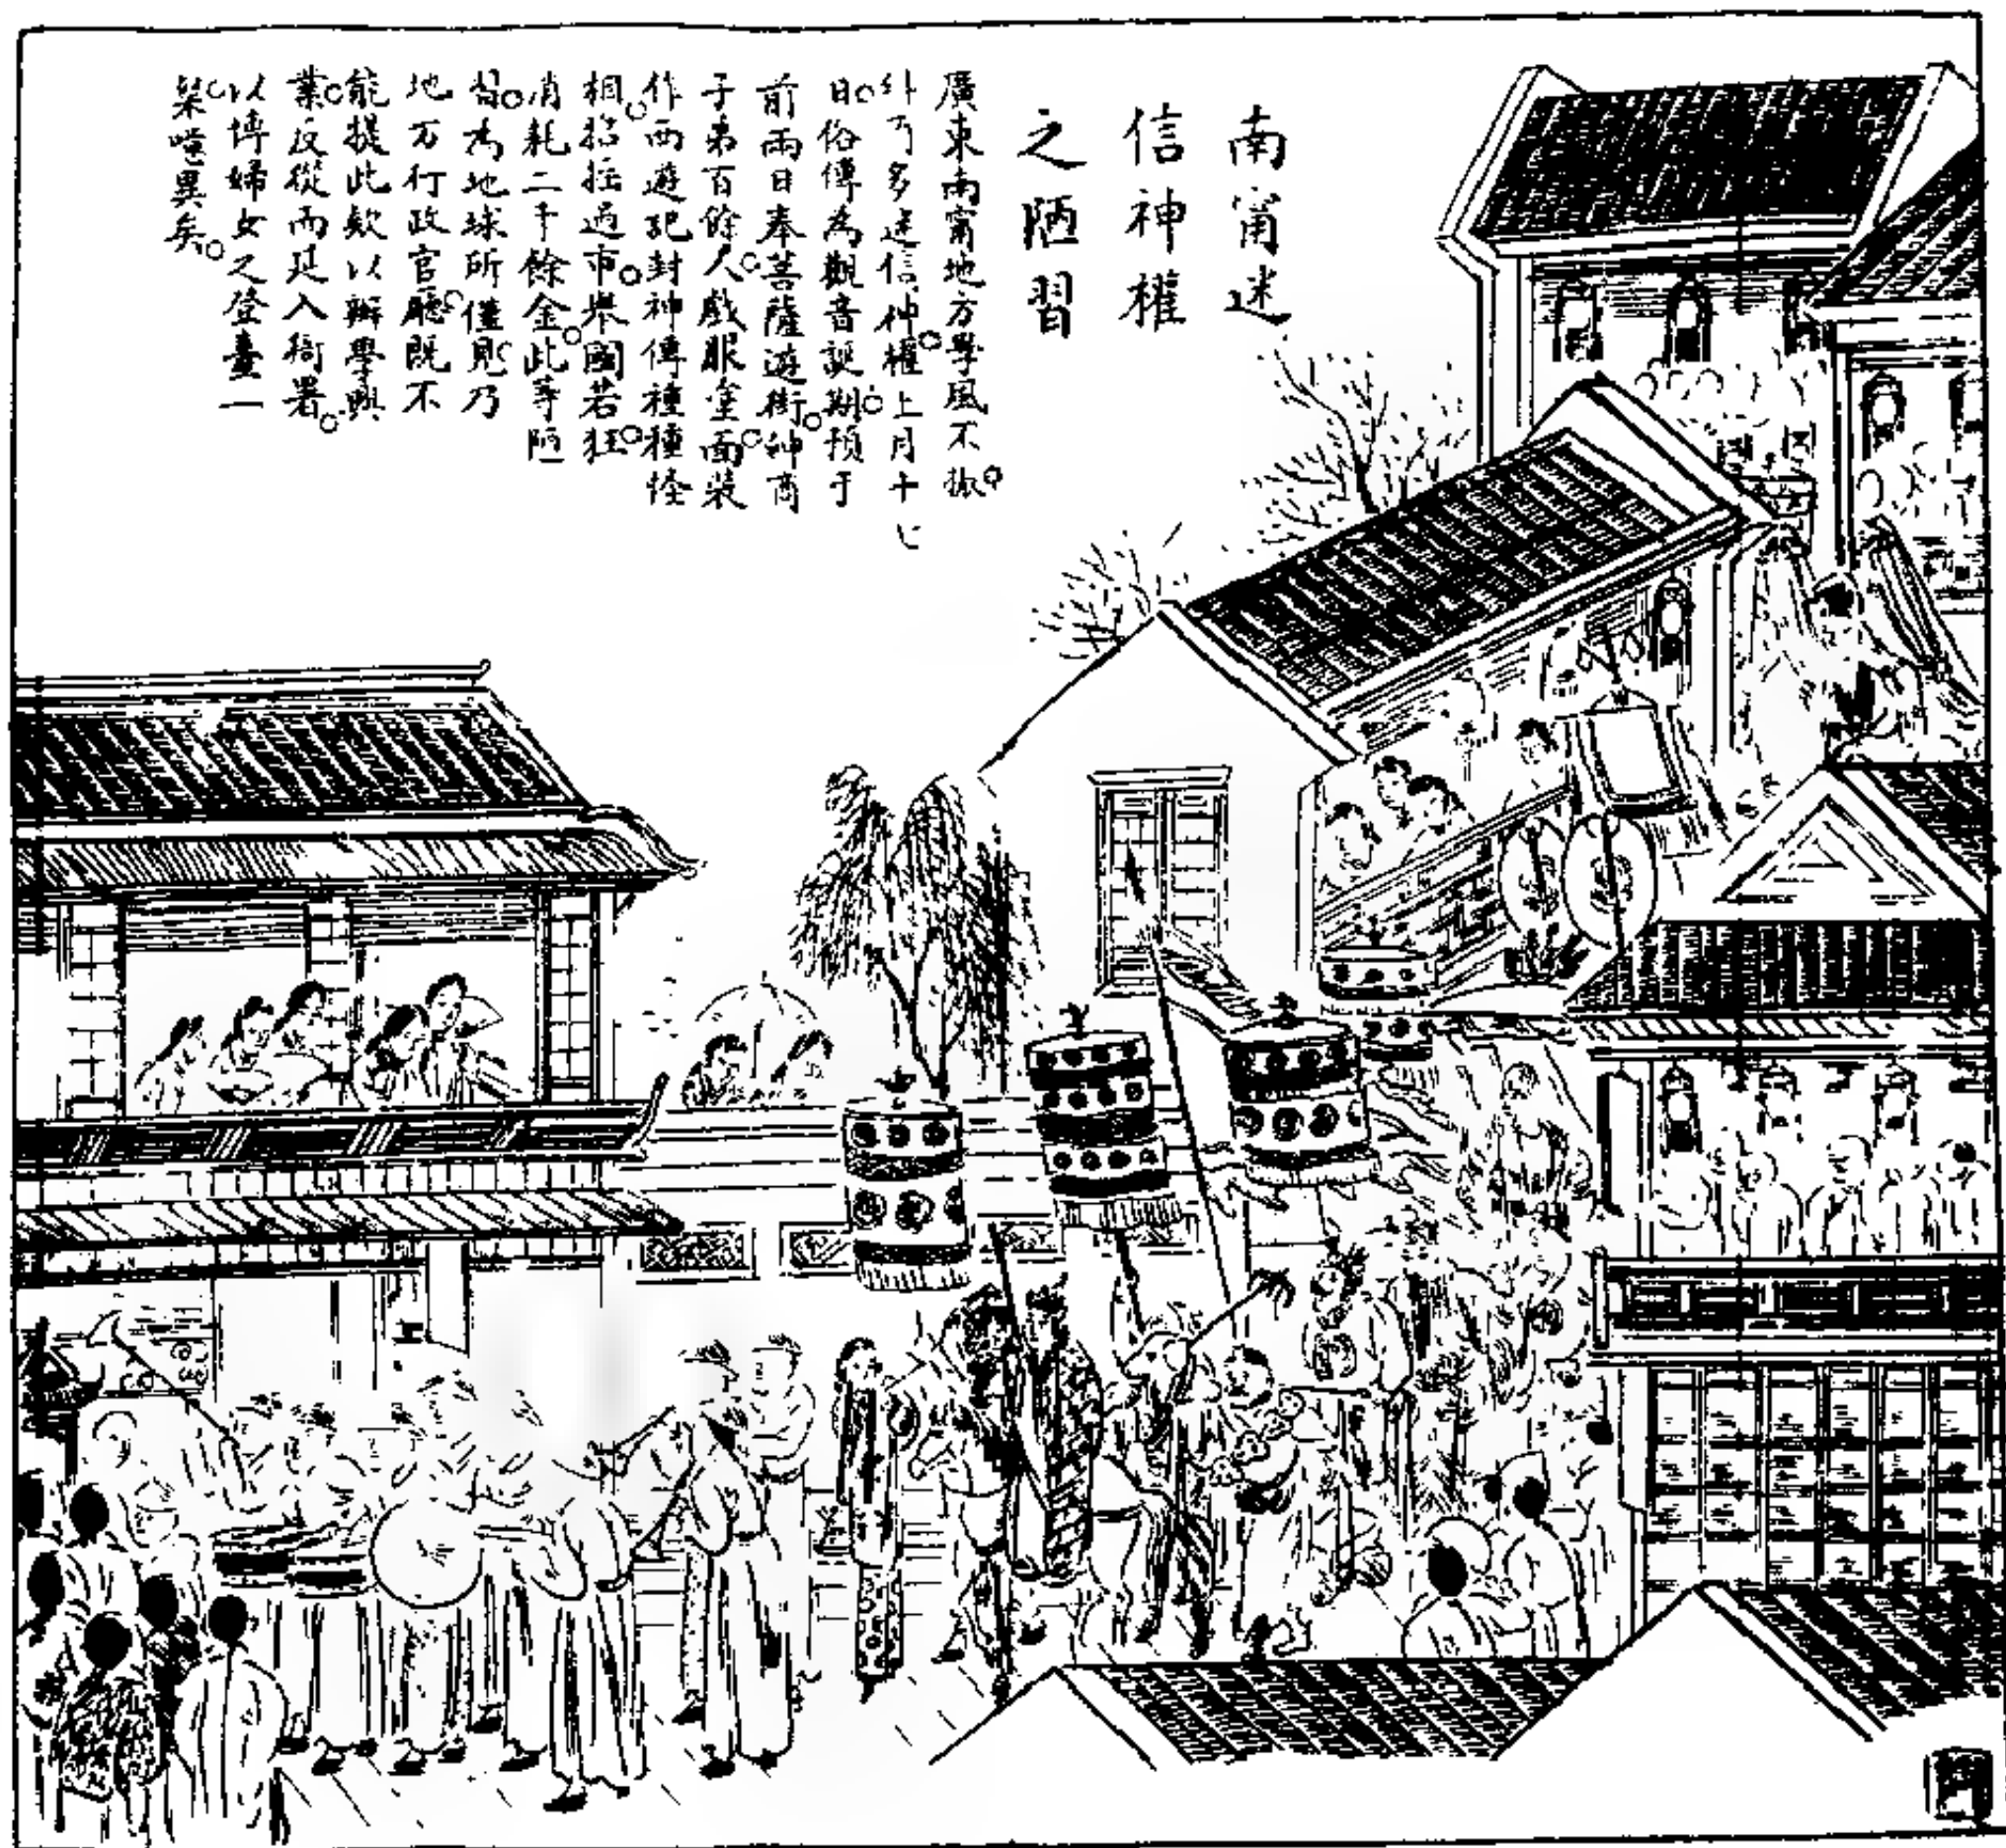 南甯迷
信神權
之陋習
廣東南甯地方學風不振
外乃多迷信神權上月十七
日俗傳為觀音誕期預于
前兩日奉菩薩遊街紳商
子弟百餘人戲服塗面裝
作西遊記封神傳種種怪
相招搖過市舉國若狂
消耗二千餘金此等陋
習為地球所僅見乃
地方行政官廳既不
能提此欵以辦學興
業反從而延入衙署
以博婦女之登臺一
粲噫異矣